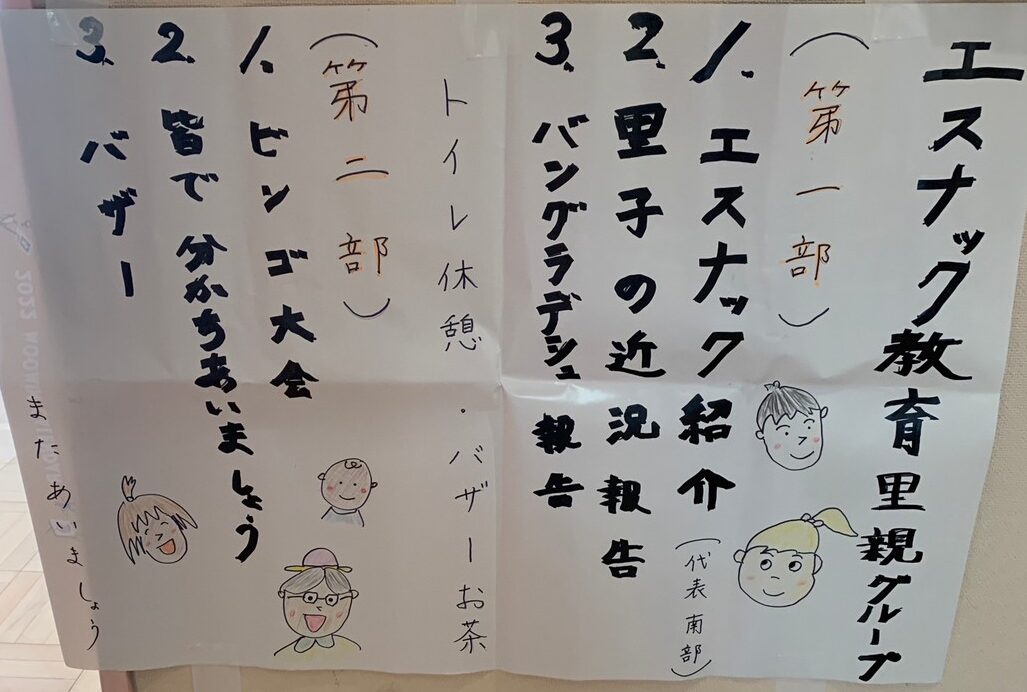 エスナック教育里親グループ
(第一部)
1. エスナック紹介(代表南部)
2. 里子の近況報告
3. バングラデシュ報告
トイレ休憩・バザーお茶
(第二部)
1. ビンゴ大会
2. 皆で分かちあいましょう
3. バザー
またあいましょう